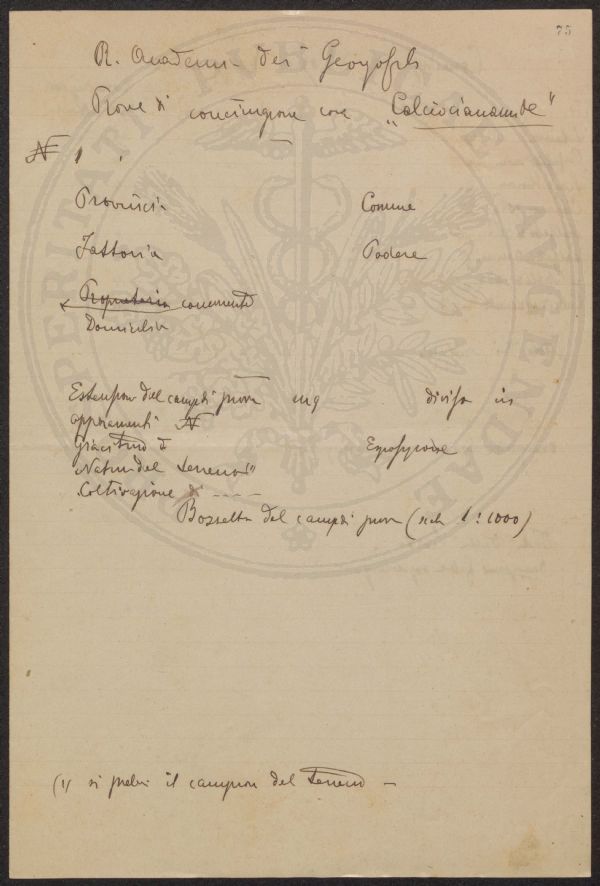 75
R. Accadem. dei Georgofili
Prove di concimazione con "Calciocianamide"
N 1
Provincia Comune
Fattoria Podere
Proprietario concimante
Domicilio
Estensione del campo di prova mq diviso in
appezzamenti N
Giacitura Esposizione
Natura del terreno (1)
Coltivazione di ----
Bozzetto del campo di prova (scala 1:1000)
(1) si prelevi il campione del terreno —
PROSPERITATI PUBLICAE AUGENDAE